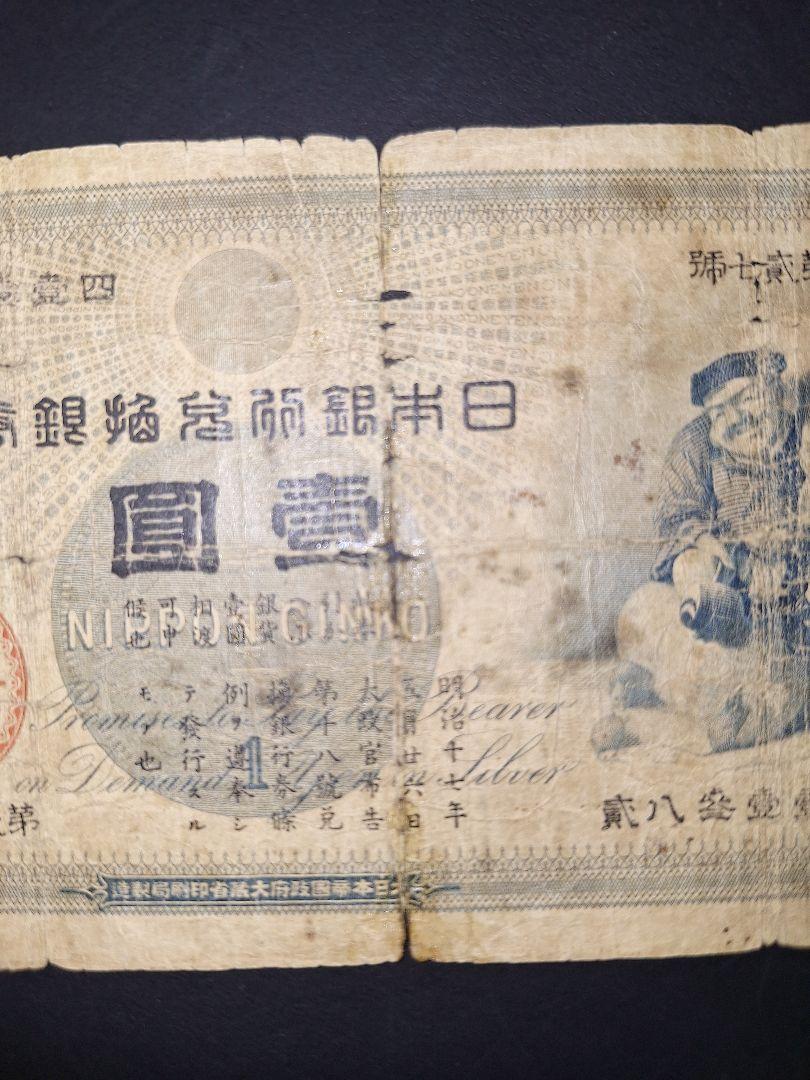 第貳七號
壹四
日本銀行兌換銀券
壹圓
NIPPON GINKO
銀貨
壹圓
相渡
可申
候也
明治十七年
五月廿六日
太政官布告
第十八號兌
換銀行券條
例ヲ遵奉シ
テ發行スル
モノ也
Promises to Pay the Bearer
on Demand 1 Yen in Silver
壹叁八貳
第
大日本帝國政府大藏省印刷局製造